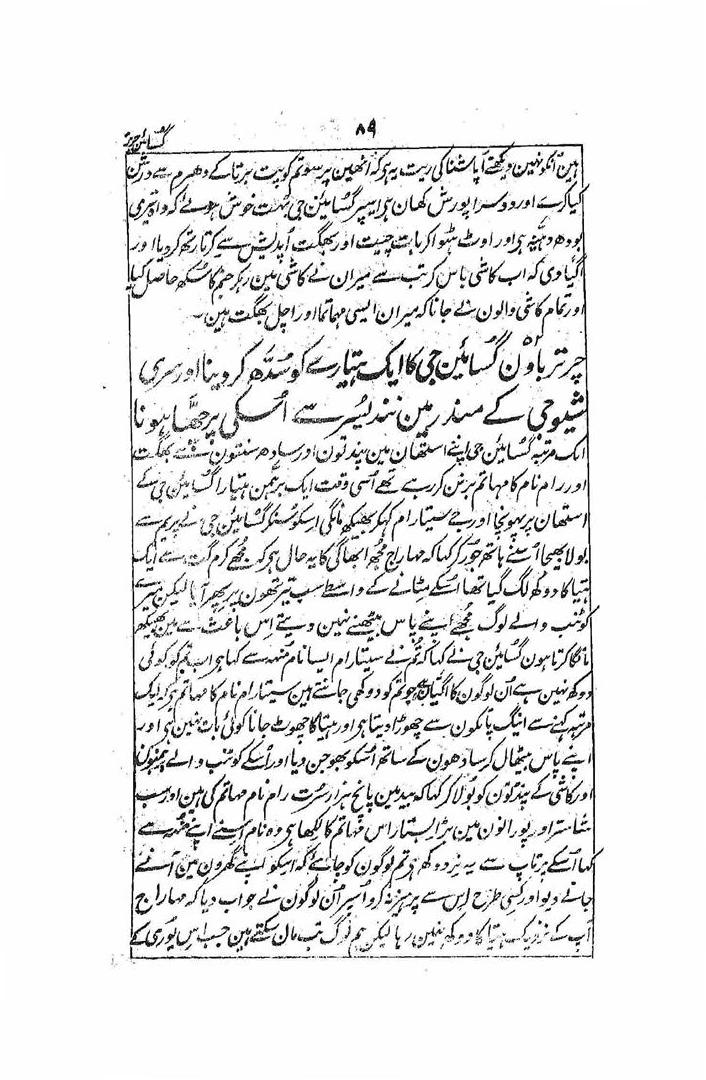 ۸۹
گسائین چرتر
ہین انکو نہین دیکھتے اُپاشنا کی ریت یہ ہی کہ انھین پرسوتم کو پت برتا کے دھرم سے درشن
کیا کرے اور دوسرا پورش کہان ہی اسپر گسائین جی بہت خوش ہوئے کہ واہ تیری
بودھ دہنیہ ہی اور اوٹ ہٹوا کر بات چیت اور بھگت اُپدیش سے کرتارتھ کر دیا اور
اگیا دی کہ اب کاشی باس کر تب سے میران نے کاشی مین رہکر جنم کا سُکھ حاصل کیا
اور تمام کاشی والون نے جانا کہ میران ایسی مہاتما اور اچل بھگت ہین۔
چرتر باون گسائین جی کا ایک ہتیارے کو سُدّھ کر دینا اور سری
شیوجی کے مندر مین نندیسُر سے اُسکی پرچھا ہونا
ایک مرتبہ گسائین جی اپنے استھان مین پنڈتون اور سادھ سنتون سے بھگت
اور رام نام کا مہاتم برنن کر رہے تھے اُسی وقت ایک برہمن ہتیارا گسائین جی کے
استھان پر پہونچا اور جے سیتارام کہکر بھیکھ مانگی اسکو سُنکر گسائین جی نے پریم سے
بولا بھیجا اُسنے ہاتھ جوڑ کر کہا کہ مہاراج مُجھ ابھاگی کا یہ حال ہی کہ مُجھے کرم گت سے ایک
ہتیا کا دوکھ لگ گیا تھا اُسکے مٹانے کے واسطے سب تیرتھون پر پھر آیا لیکن میرے
کوٹنب والے لوگ مُجھے اپنے پاس بیٹھنے نہین دیتے اِس باعث سے مین بھیکھ
مانگا کرتا ہون گسائین جی نے کہا کہ تُم نے سیتارام ایسا نام مُنھ سے کہا ہی اب تم کو کوئی
دوکھ نہین ہے اُن لوگون کا اگیان ہی جو تم کو دوکھی جانتے ہین سیتارام نام کا مہاتم ہی کہ ایک
مرتبہ کہنے سے انیگ پاتکون سے چھوڑا دیتا ہی اور ہتیا کا چھوٹ جانا کوئی بات نہین ہی اور
اپنے پاس بیٹھال کر سادھون کے ساتھ اُسکو بھوجن دیا اور اُسکے کوٹنب والے برہمنون
اور کاشی کے پنڈتون کو بُولا کر کہا کہ بید مین پانچ ہزار سُرت رام نام مہاتم کی ہین اور سب
شاستر اور پورانون مین بڑا بستار اس مہاتم کا لکھا ہی وہ نام اِسنے اپنے مُنھ سے
کہا اُسکے پرتاپ سے یہ نردوکھ ہی تم لوگون کو چاہئے کہ اِسکو اپنے گھرون مین آنے
جانے دیو اور کسی طرح اِس سے پرہیز نہ کرو اُسپر اُن لوگون نے جواب دیا کہ مہاراج
آپ کے نزدیک ہتیا کا دوکھ نہین رہا لیکن ہم لوگ تب مان سکتے ہین جب اِس پوری کے